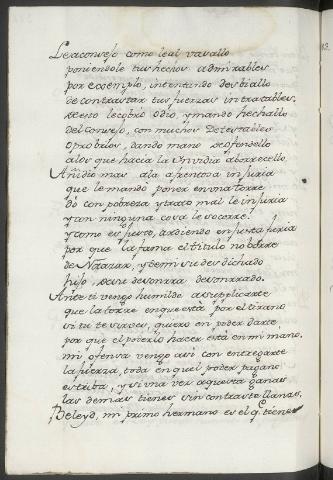 Leaconsejo como leal vasallo
poniendole tus hechos admirables
por exemplo, intentando desbiallo
de contrastar tus fuerzas intratables,
xesto lecobró odio, y mando hechallo
del consejo, con muchos detestables
oprobrios, dando mano
alos que hacia la Ynvidia aborrecello.
Añidio mas ala afrentosa injuria
que le mandó poner en vna torre
dó con pobreza ytrato mal le injuria
y con ninguna cosa le socorre.
y como es justo, ardiendo en justa furia
por que la fama el titulo no borre
de Nazar, y de mi su desdichado
hijo, seré desonrra desonrrado.
Ante ti vengo humilde a suplicarte
que la torre en que está por el tirano
si tu te sirves, quiero en poder darte
por que el poderlo hacer está en mi mano.
mi ofensa vengo asi con entregarte
la fuerza, toda en qual poder pagano
estriba, y si vna vez aquesta ganas
las demas tienes sin contraste llanas.
Beleyd, mi primo hermano es el q. tiene